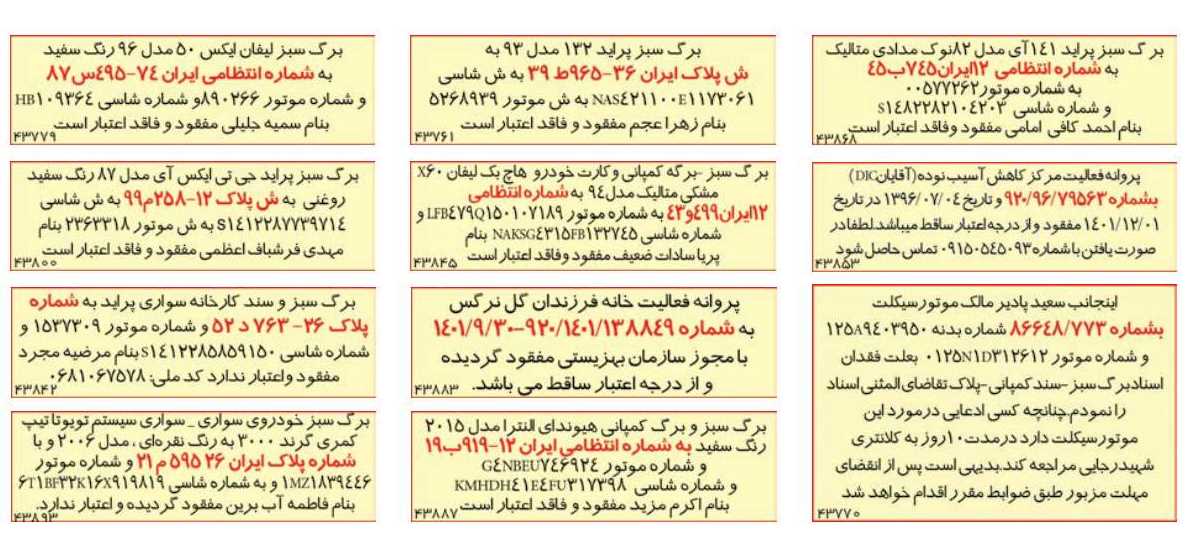 بر گ سبز پراید ۱٤۱آی مدل ۸۲نوک مدادی متالیک
به شماره انتظامی ۱۲ایران۷٤۵ب٤۵
به شماره موتور۰۰۵۷۷۲۶۲
و شماره شاسی S۱٤۸۲۲۸۲۱۰٤۲۰۳
بنام احمد کافی امامی مفقود وفاقد اعتبار است
۴۳۸۶۸
پروانه فعالیت مر کز کاهش آسیب نوده(آقایانDIC)
بشماره۹۲۰/۹۶/۷۹۵۶۳ و تاریخ ۱۳۹۶/۰۷/۰٤ در تاریخ
۱٤۰۱/۱۲/۰۱ مفقود و از درجه اعتبار ساقط میباشد.لطفادر
صورت یافتن باشماره۰۹۱۵۰۵٤۵۰۹۳ تماس حاصل شود
۴۳۸۵۳
اینجانب سعید پادیر مالک موتورسیکلت
بشماره ۸۶۶٤۸/۷۷۳ شماره بدنه ۱۲۵A۹٤۰۳۹۵۰
و شماره موتور ۰۱۲۵N۱D۳۱۲۶۱۲ بعلت فقدان
اسنادبرگ سبز -سند کمپانی -پلاک تقاضای المثنی اسناد
را نمودم.چنانچه کسی ادعایی درمورد این
موتورسیکلت دارد درمدت۱۰روز به کلانتری
شهیدرجایی مراجعه کند.بدیهی است پس از انقضای
مهلت مزبور طبق ضوابط مقرر اقدام خواهد شد
۴۳۷۷۰
بر گ سبز پراید ۱۳۲ مدل ۹۳ به
ش پلاک ایران ۳۶-۹۶۵ط ۳۹ به ش شاسی
NAS٤۲۱۱۰۰E۱۱۷۳۰۶۱ به ش موتور ۵۲۶۸۹۳۹
بنام زهرا عجم مفقود و فاقد اعتبار است
۴۳۷۶۱
بر گ سبز -بر گه کمپانی وکارت خودرو هاچ بک لیفان X۶۰
مشکی متالیک مدل۹٤ به شماره انتظامی
۱۲ایران٤۹۹و٤۳ به شماره موتور LFB٤۷۹Q۱۵۰۱۰۷۱۸۹ و
شماره شاسی NAKSG٤۳۱۵FB۱۳۲۷٤۵ بنام
پریا سادات ضعیف مفقود وفاقد اعتبار است
۴۳۸۴۵
پروانه فعالیت خانه فرزندان گل نرگس
به شماره ۱٤۰۱/۹/۳۰-۹۲۰/۱٤۰۱/۱۳۸۸٤۹
با مجوز سازمان بهزیستی مفقود گردیده
و از درجه اعتبار ساقط می باشد.
۴۳۸۸۳
برگ سبز و برگ کمپانی هیوندای النترا مدل ۲۰۱۵
رنگ سفید به شماره انتظامی ایران ۱۲-۹۱۹ب۱۹
و شماره موتور G٤NBEU۷٤۶۹۲٤
و شماره شاسی KMHDH٤۱E٤FU۳۱۷۳۹۸
بنام اکرم مزید مفقود و فاقد اعتبار است
۴۳۸۸۷
بر گ سبز لیفان ایکس ۵۰ مدل ۹۶ رنگ سفید
به شماره انتظامی ایران ۷٤-٤۹۵س۸۷
و شماره موتور ۸۹۰۲۶۶و شماره شاسی HB۱۰۹۳۶٤
بنام سمیه جلیلی مفقود و فاقد اعتبار است
۴۳۷۷۹
بر گ سبز پراید جی تی ایکس آی مدل ۸۷ رنگ سفید
روغنی به ش پلاک ۱۲-۲۵۸م۹۹ به ش شاسی
S۱٤۱۲۲۸۷۷۳۹۷۱٤ به ش موتور ۲۳۶۳۳۱۸ بنام
مهدی فرشباف اعظمی مفقود و فاقد اعتبار است
۴۳۸۰۰
بر گ سبز و سند کارخانه سواری پراید به شماره
پلاک ۳۶- ۷۶۳ د ۵۲ و شماره موتور ۱۵۳۷۳۰۹ و
شماره شاسی S۱٤۱۲۲۸۵۸۵۹۱۵۰بنام مرضیه مجرد
مفقود واعتبار ندارد کد ملی: ۰۶۸۱۰۶۷۵۷۸
۴۳۸۴۲
بر گ سبز خودروی سواری _ سواری سیستم تویوتا تیپ
کمری گرند ۳۰۰۰ به رنگ نقره‌ای ، مدل ۲۰۰۶ و با
شماره پلاک ایران ۳۶ ۵۹۵ م ۲۱ و شماره موتور
۱MZ۱۸۳۹٤٤۶ و به شماره شاسی ۶T۱BF۳۲K۱۶X۹۱۹۸۱۹
بنام فاطمه آب برین مفقود گردیده و اعتبار ندارد.
۴۳۸۹۳